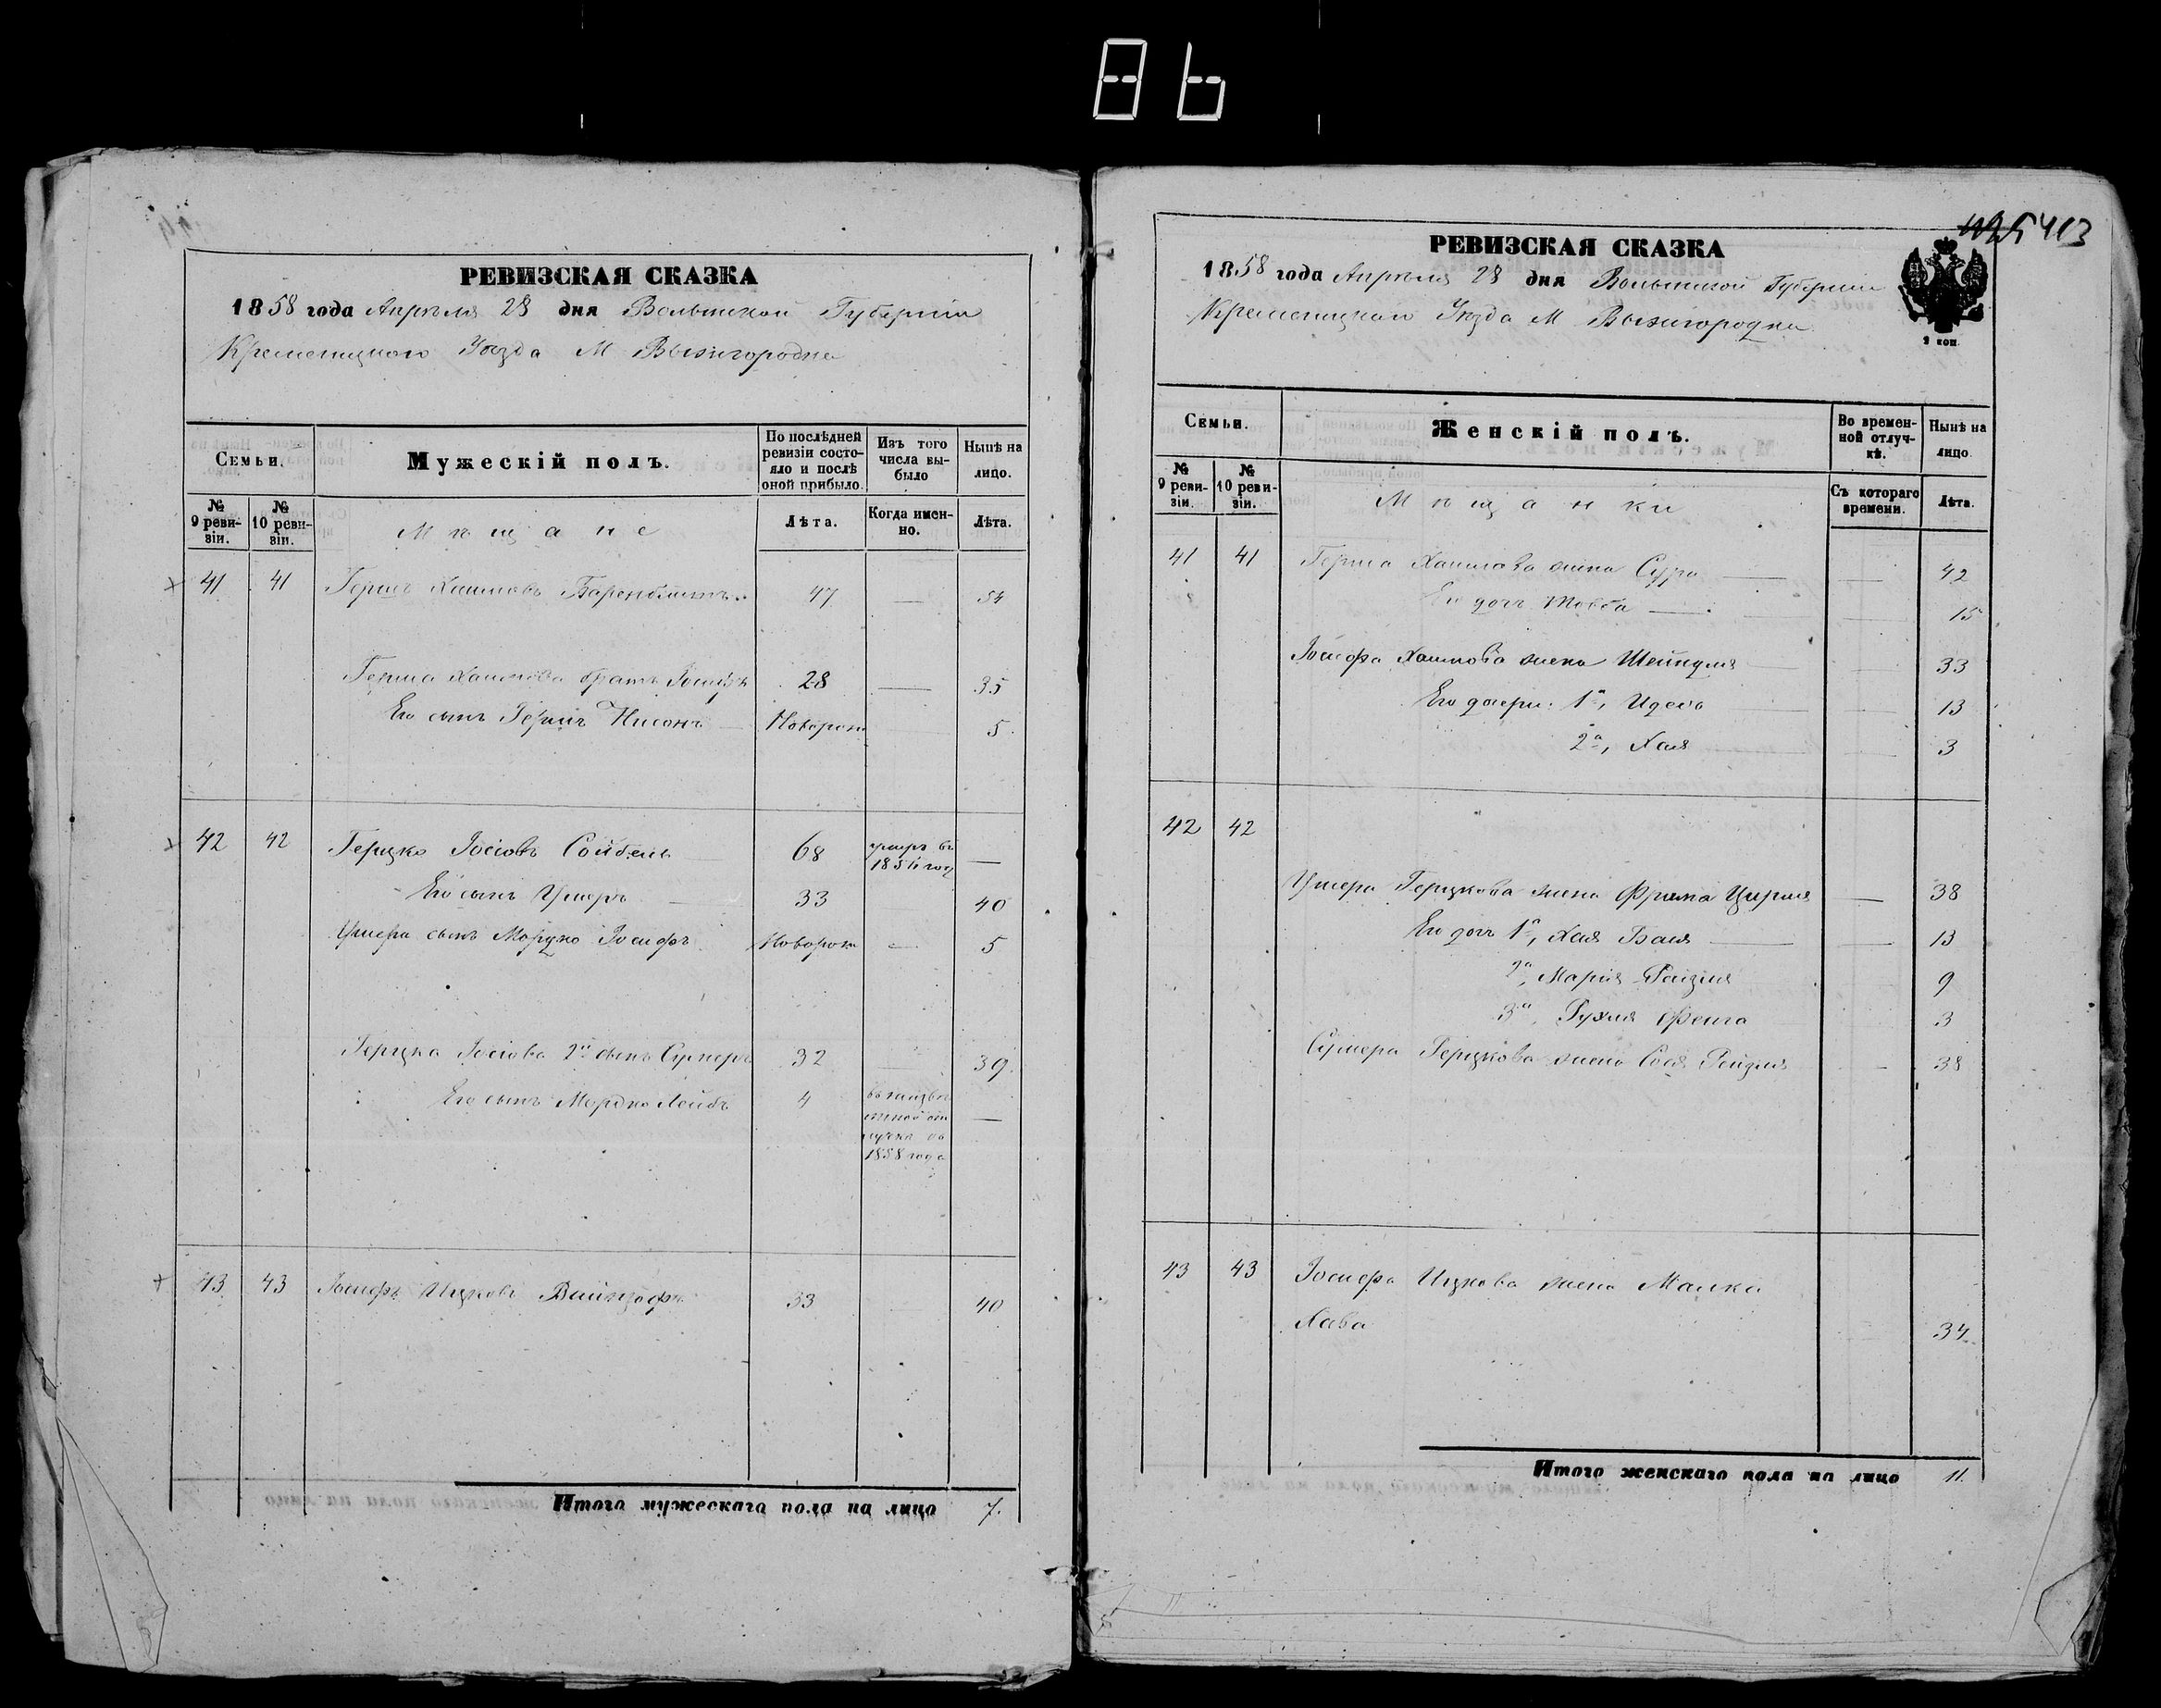 86
РЕВИЗСКАЯ СКАЗКА
1858 года Апрѣля 28 дня Волынской Губерніи
Кременецкого Уѣзда М Вышгородка
Семьи.
Мужескій полъ.
По послѣдней ревизіи состояло и послѣ оной прибыло.
Изъ того числа выбыло
Нынѣ на лицо.
№ 9 ревизіи.
№ 10 ревизіи.
Мѣщане
Лѣта.
Когда именно.
Лѣта.
41 41 Гершъ Хаимовъ 47 — 54
Герша Хаимова братъ Іосифъ 28 — 35
Его сынъ Гершъ Нисонъ Новорож 5
42 42 Герцко Іосіовъ Сойбель 68 умеръ въ —
Его сынъ Умеръ 33 40
Умера сынъ Мордко Іосифъ Новорож — 5
Герцка Іосіова 2й сынъ Сумеръ 32 39
Его сынъ Мордко Лейбъ 4 въ неизвѣстной отлучкѣ съ 1858 года —
43 43 Іосифъ Ицковъ 33 40
Итого мужескаго пола на лицо 7.
413
РЕВИЗСКАЯ СКАЗКА
1858 года Апрѣля 28 дня Волынской Губерніи
Кременецкого Уѣзда М Вышгородка
2 коп.
Семьи.
Женскій полъ.
Во временной отлучкѣ.
Нынѣ на лицо.
№ 9 ревизіи.
№ 10 ревизіи.
Мѣщанки
Съ котораго времени.
Лѣта.
41 41 Герша Хаимова жена Сура — 42
Его дочь Товба — 15
Іосифа Хаимова жена Шейндля 33
Его дочери: 1я, Идесь 13
2я, Хая 3
42 42
Умера Герцкова жена Фрима Цирля — 38
Его дочь 1я, Хая Бася — 13
2я, Марія Рейзля 9
3я, Рухля Фейга 3
Сумера Герцкова жена Сося Рейзля 38
43 43 Іосифа Ицкова жена Малка
Хава 34
Итого женскаго пола на лицо 11.